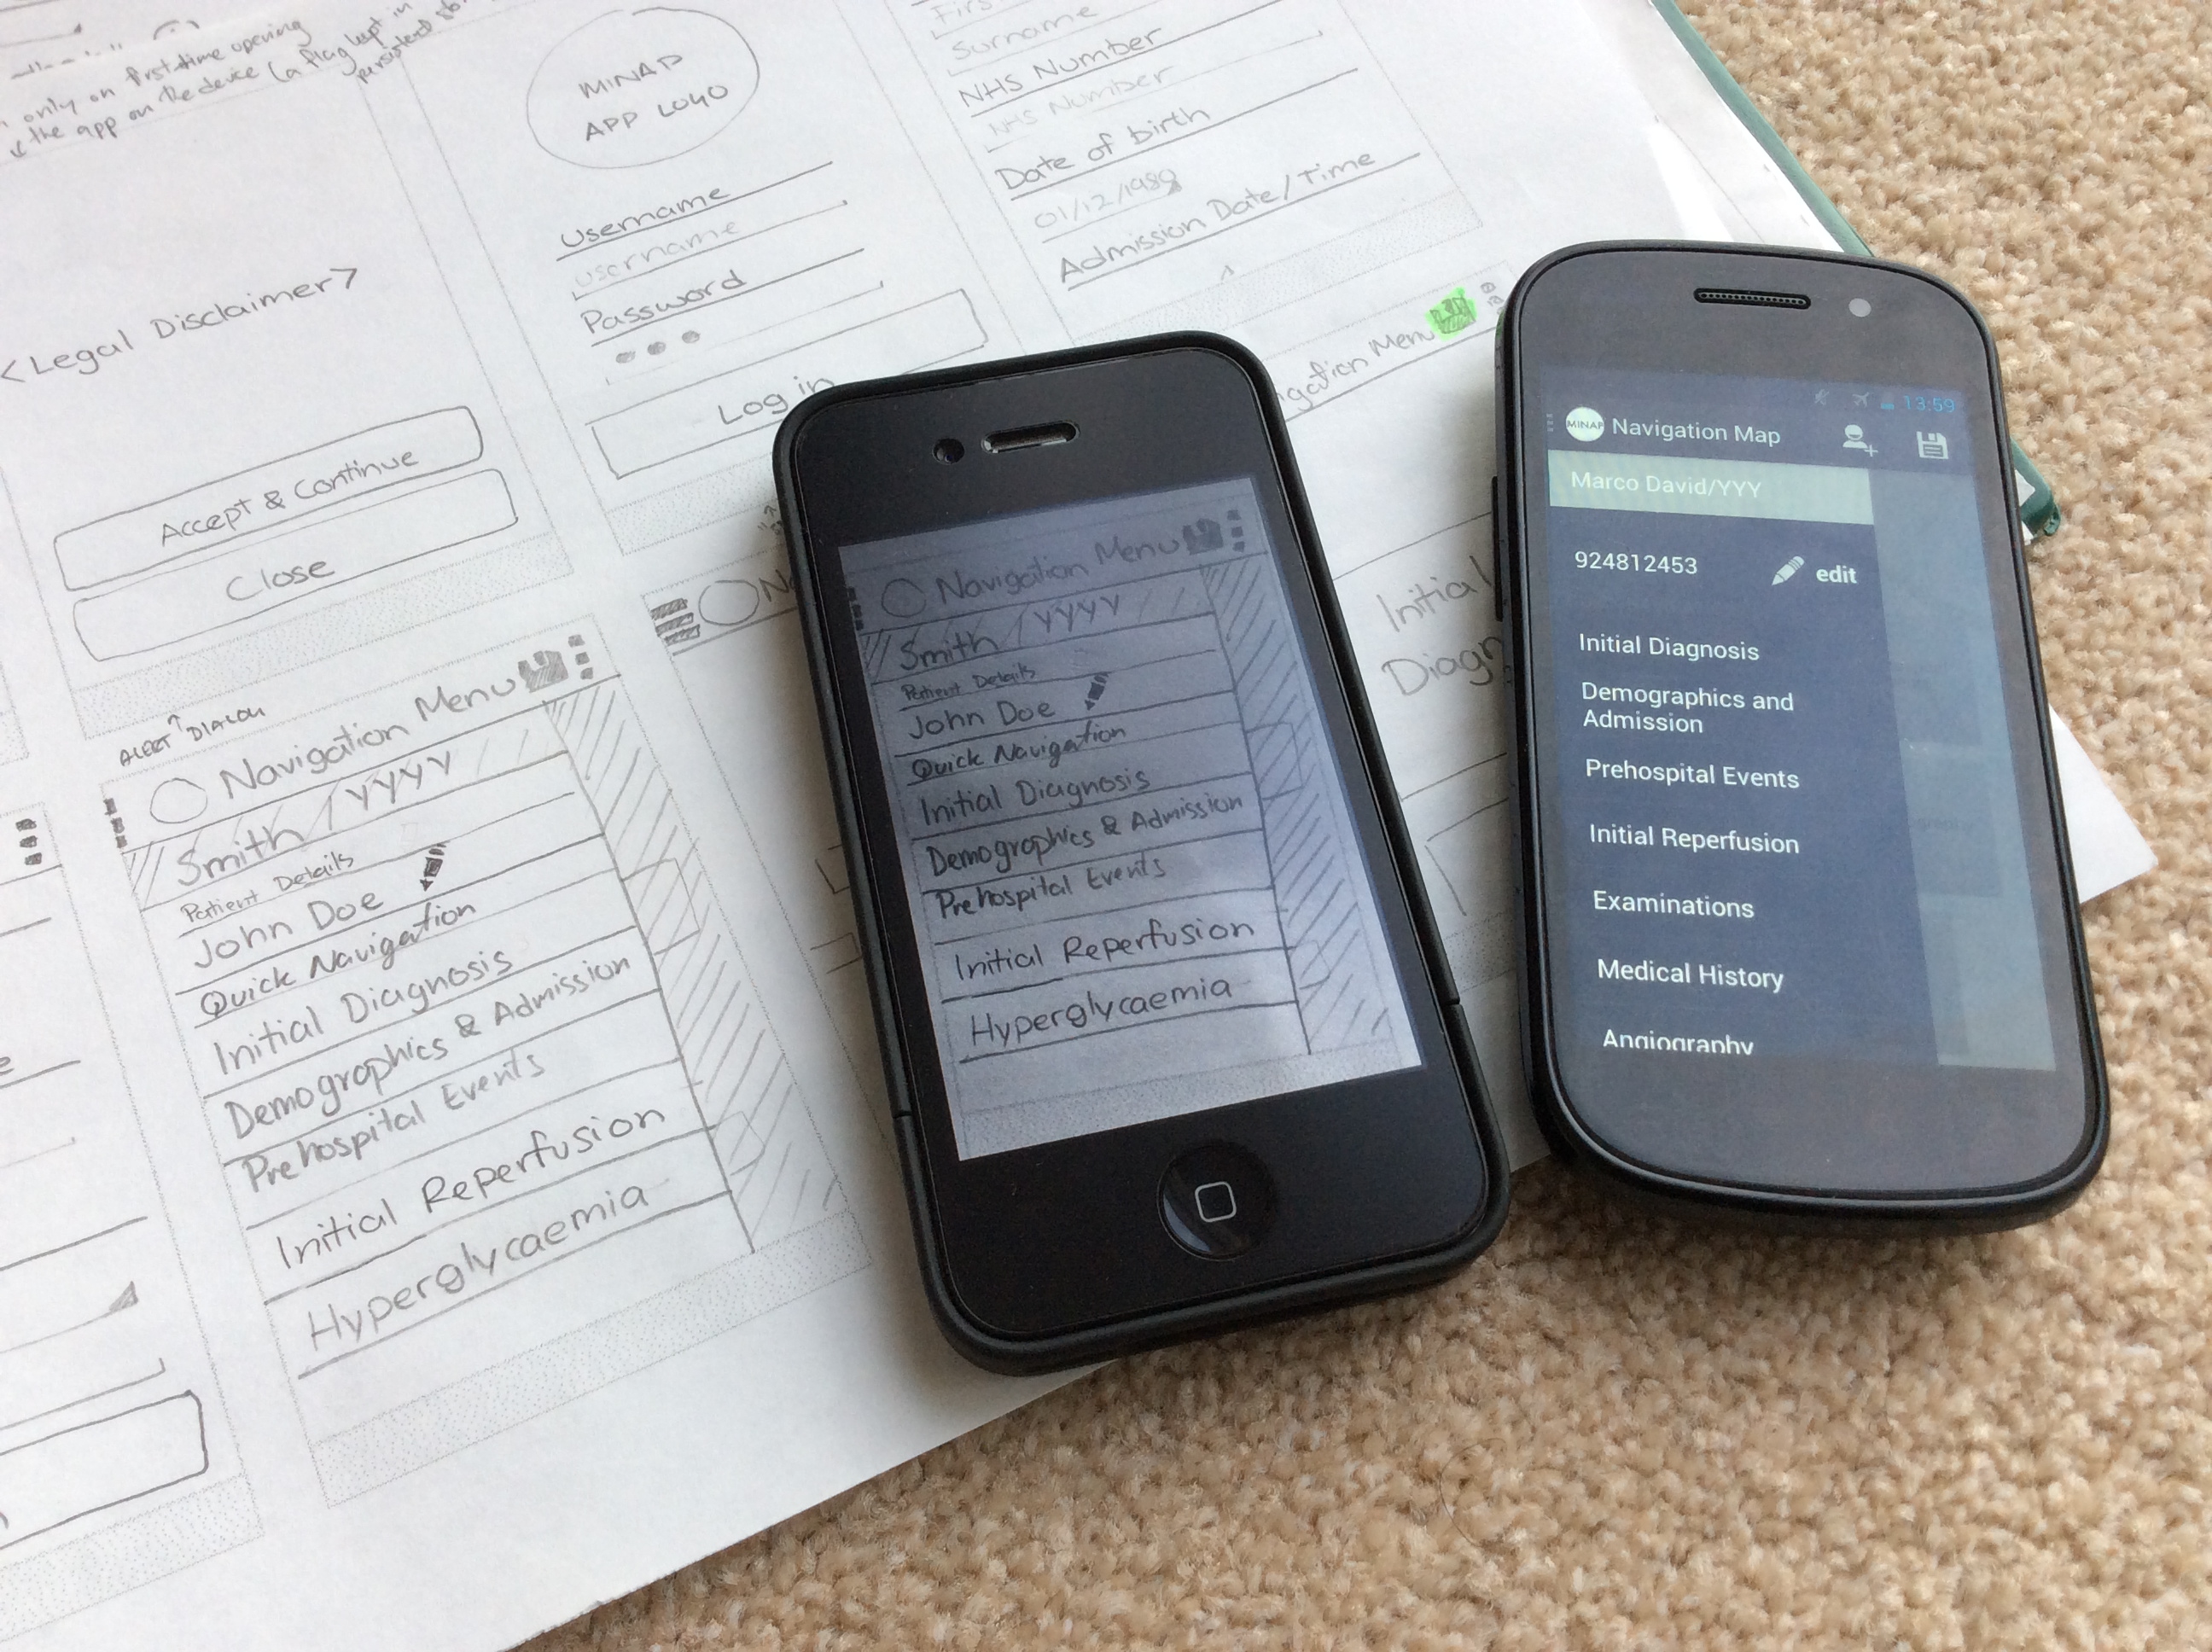 only on first time opening
the app on the device (a flag kept in
persistent
<Legal Disclaimer>
Accept & Continue
Close
MINAP
APP LOGO
Username
username
Password
Log in
Surname
NHS Number
NHS Number
Date of birth
01/12/1989
Admission Date/Time
ALERT DIALOG
Navigation Menu
Smith / YYYY
Patient Details
John Doe
Quick Navigation
Initial Diagnosis
Demographics & Admission
Prehospital Events
Initial Reperfusion
Hyperglycaemia
Menu
Initial
Navigation Menu
Smith / YYYY
Patient Details
John Doe
Quick Navigation
Initial Diagnosis
Demographics & Admission
Prehospital Events
Initial Reperfusion
Hyperglycaemia
13:59
MINAP Navigation Map
Marco David/YYY
924812453 edit
Initial Diagnosis
Demographics and
Admission
Prehospital Events
Initial Reperfusion
Examinations
Medical History
Angiography